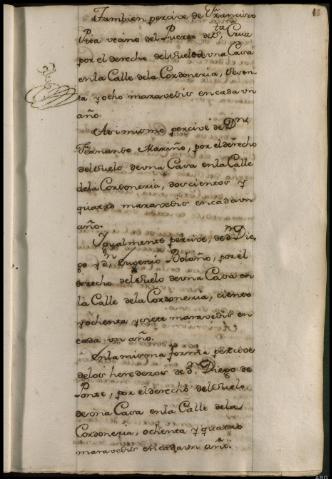 Tambien percive de Francisco
Vecino del Puerto de Sta. Cruz
por el derecho del suelo de una Casa
en la Calle de la Cordoneria, seten-
ta, y ocho maravedis en cada un
año.
Asimismo percive de Dn.
Fernando Mariño, por el derecho
del suelo de una Casa en la Calle
de la Cordoneria, doscientos y
quatro maravedis en cada un
año.
Igualmente percive, de Dn. Die-
go y Dn. Eugenio Bolaño, por el
derecho del suelo de una Casa en
la Calle de la Cordoneria, ciento
y ochenta y siete maravedis en
cada un año.
En la misma forma percive
de los herederos de Dn. Diego de
Ponte, por el derecho del suelo
de una Casa en la Calle de la
Cordoneria, ochenta y quatro
maravedis en cada un año.